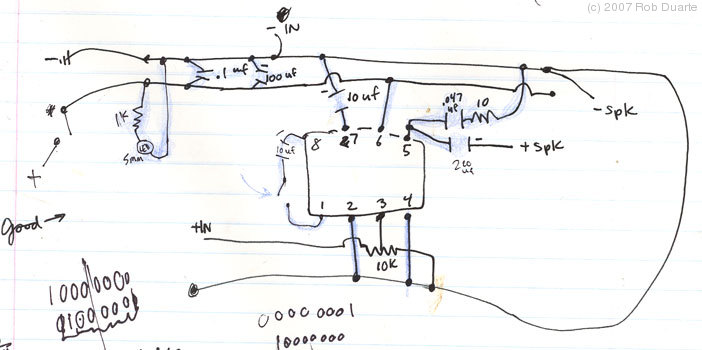 (c) 2007 Rob Duarte
- IN
.1 uf
100 uf
.047 uf
10
10 uf
1K
LED
5mm
- spk
+ spk
220 uf
+
10 uf
8
7
6
5
1
2
3
4
+IN
10K
Good →
10000000
00000001
10000000